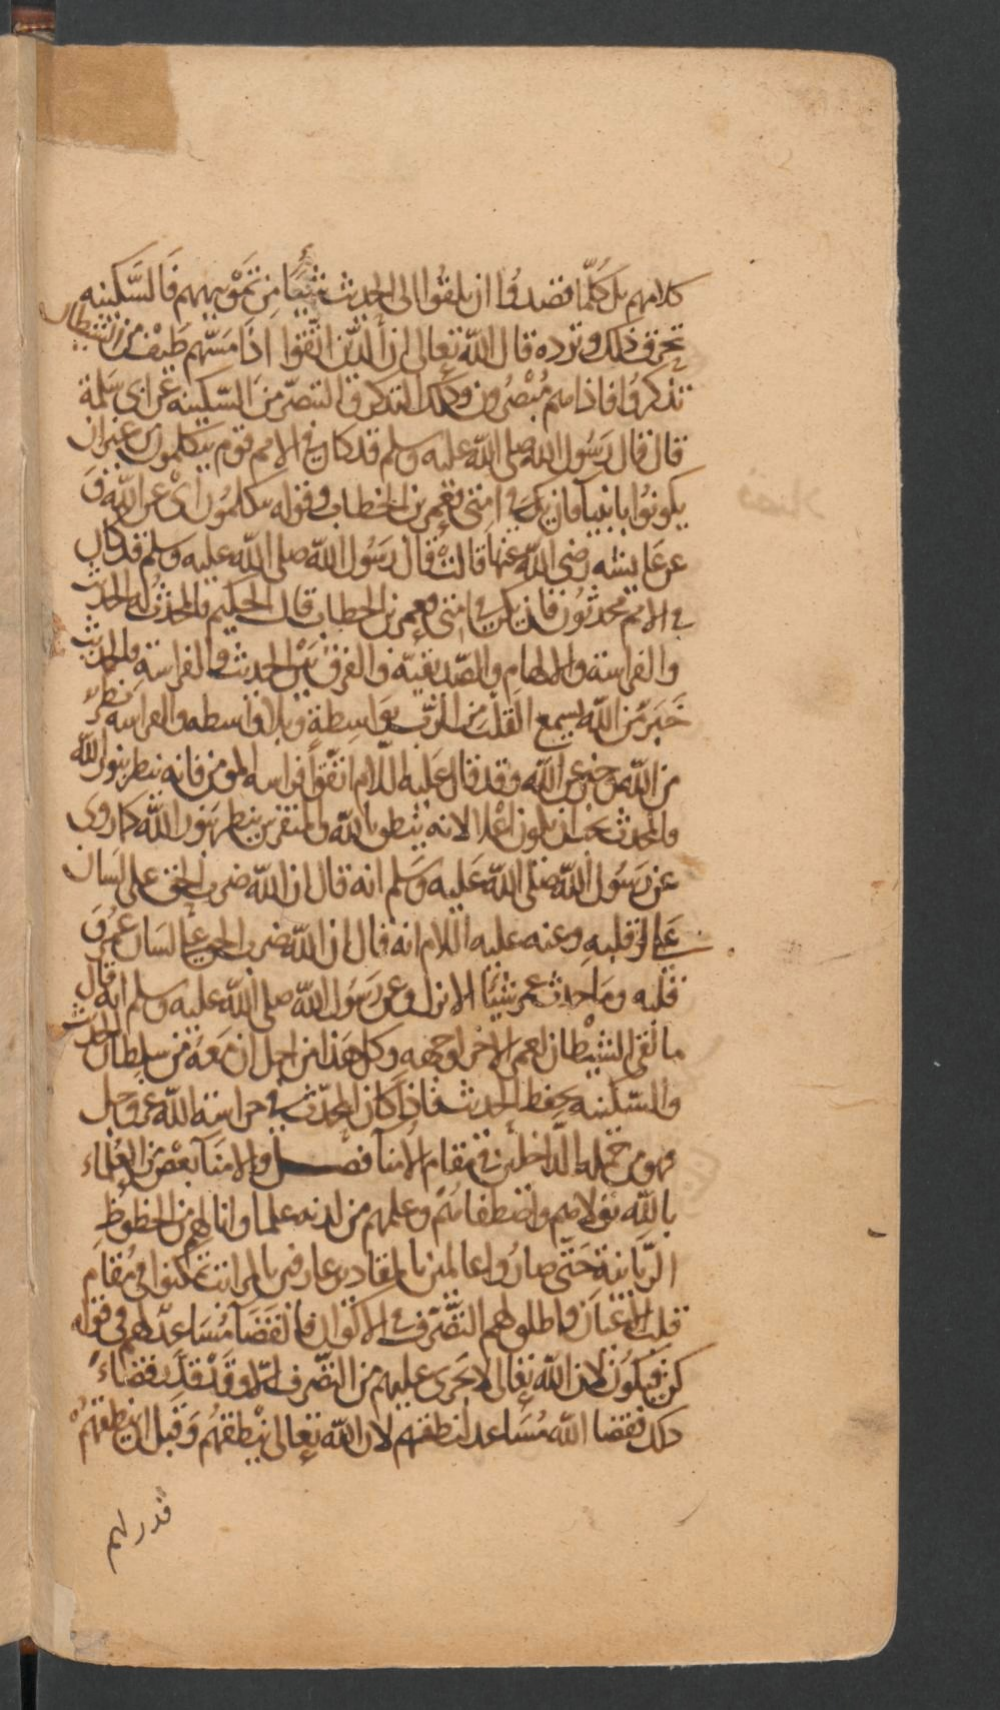 كلامهم بل كلّما قصدوا ان يلقوا الى الحديث شيئا من تمويههم فالسّكينه
تحرق ذلك وترده قال الله تعالى ان الذين اتّقوا اذا مسّهم طيف من الشيطان
تذكروا فاذا هم مبصرون وكذلك التذكر والتبصّر من السّكينه عن ابى سلمة
قال قال رسول الله صلى الله عليه وسلم قد كان فى الامم قوم يتكلمون من غير ان
يكونوا بانبيا فان يكن فى امتى فعمر بن الخطاب وقوله يتكلمون اى عن الله و
عن عايشه رضى الله عنها قالت قال رسول الله صلى الله عليه وسلم قد كان
فى الامم محدثون فان يكن فى امتى فعمر بن الخطاب قال الحكيم فالمحدث له الحديث
والفراسة والالهام والصّديقيّه والفرق بين الحديث والفراسة فالحديث
خبر من الله يسمع القلب من الرّب بواسطة وبلا واسطه والفراسه نظر
من الله عن الله وقد قال عليه السّلام اتّقوا فراسه المومن فانه ينظر بنور الله
والمحدث يجب ان يكون اعلا لانه ينطق بالله والمتفرس ينظر بنور الله كما روى
عن رسول الله صلى الله عليه وسلم انه قال ان الله ضرب الحق على لسان
عمر وقلبه وعنه عليه السّلام انه قال ان الله ضرب الحق على لسان عمر و
قلبه وما حدث عمر شيئا الا نزل وعن رسول الله صلى الله عليه وسلم انه قال
ما لقى الشيطان لعمر الا خر لوجهه وكل هذا من اجل ان معه من سلطان الحديث
والسّكينه يحفظ الحديث فاذا كان المحدّث فى حراسة الله عز وجل
فهو من جمله الدّاخلين فى مقام الامنا فصل والامنا بعض من العلماء
بالله تولاهم واصطفاهم وعلمهم من لدنه علما وانالهم من الحظوظ
الربّانية حتى صاروا عالمين بالمقادير عارفين بالمراتب تمكنوا فى مقام
قلب الاعيان واطلق لهم التّصّرف فى الاكوان فالقضا مساعد لهم فى قوله
كن فيكون لان الله تعالى لا يجرى عليهم من التصّرف الّا وقد تقدّم قضاء
ذلك فقضا الله مساعد لنطقهم لان الله تعالى ينطقهم وقبل ان ينطقهم
قدر لهم